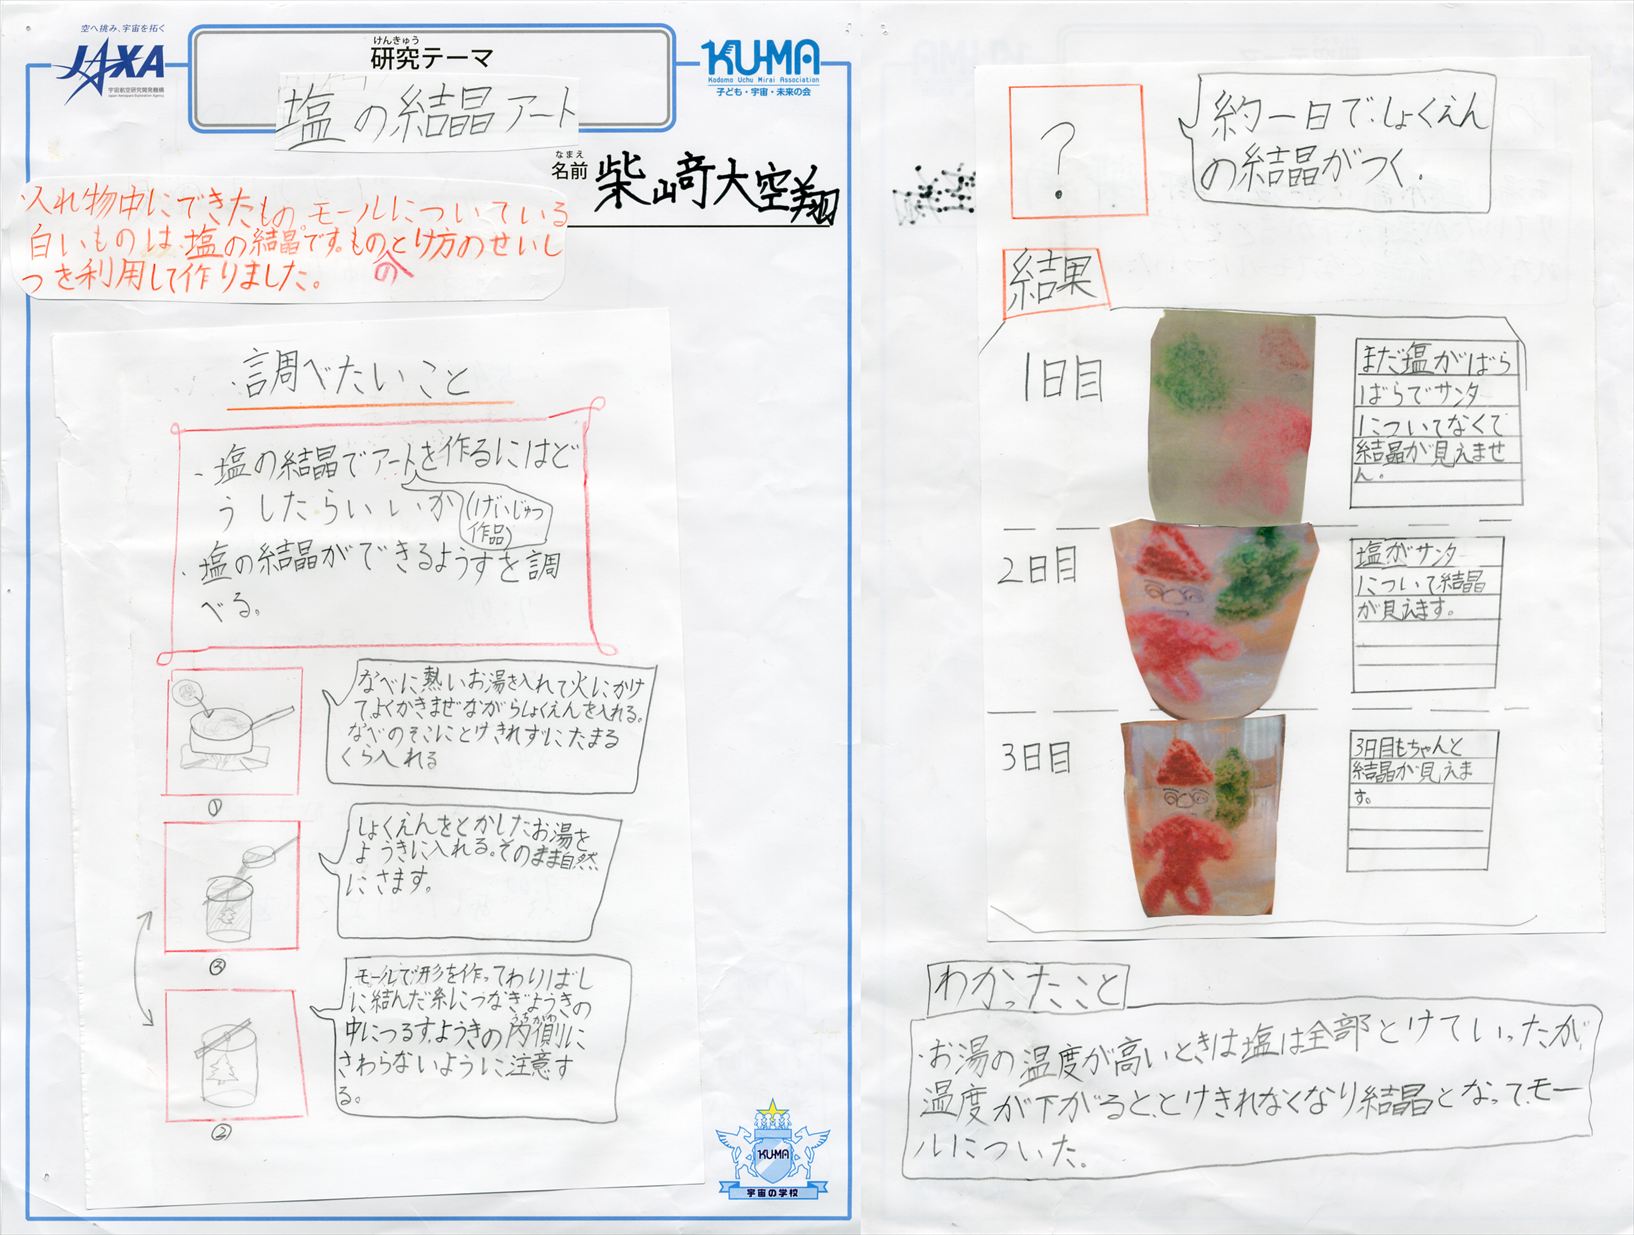 空へ挑み、宇宙を拓く
JAXA
宇宙航空研究開発機構
Japan Aerospace Exploration Agency
けんきゅう
研究テーマ
塩の結晶アート
KU-MA
Kodomo Uchu Mirai Association
子ども・宇宙・未来の会
なまえ
名前 柴山奇大空翔
・入れ物中にできたもの。モールについている
白いものは、塩の結晶です。ものとけ方のせいし
の
つを利用して作りました。
・調べたいこと
・塩の結晶でアートを作るにはど
うしたらいいか
(げいじゅつ
作品)
・塩の結晶ができるようすを調
べる。
なべに熱いお湯を入れて火にかけ
てよくかきまぜながらしょくえんを入れる。
なべのそこにとけきれずにたまる
くら入れる
①
しょくえんをとかしたお湯を
ようきに入れる。そのまま自然
にさます。
③
モールで形を作ってわりばし
に結んだ糸につなぎようきの
中につるす。ようきの内側に
うちがわ
さわらないように注意す
る。
②
KU-MA
宇宙の学校
?
約一日で、しょくえん
の結晶がつく.
結果
1日目
まだ塩がばら
ばらでサンタ
についてなくて
結晶が見えませ
ん。
2日目
塩がサンタ
について結晶
が見えます。
3日目
3日目もちゃんと
結晶が見えま
す。
わかったこと
・お湯の温度が高いときは塩は全部とけていったが、
温度が下がると、とけきれなくなり結晶となって、モー
ルについた。